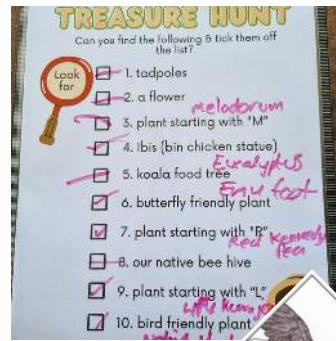 TREASURE HUNT
Can you find the following & tick them off
the list?
Look
for
1. tadpoles
2. a flower
melodorum
3. plant starting with "M"
4. Ibis (bin chicken statue)
Eucalyptus
5. koala food tree
Emu foot
6. butterfly friendly plant
7. plant starting with "R"
Red Kennedy
Pea
8. our native bee hive
9. plant starting with "L"
10. bird friendly plant